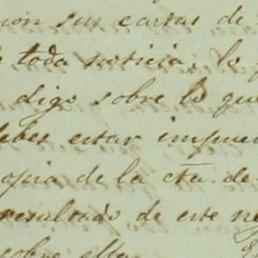 con sus cartas de
toda noticia, lo
digo sobre lo que
debes estar impues
copia de la cta. de
resultado de este ne
sobre ella